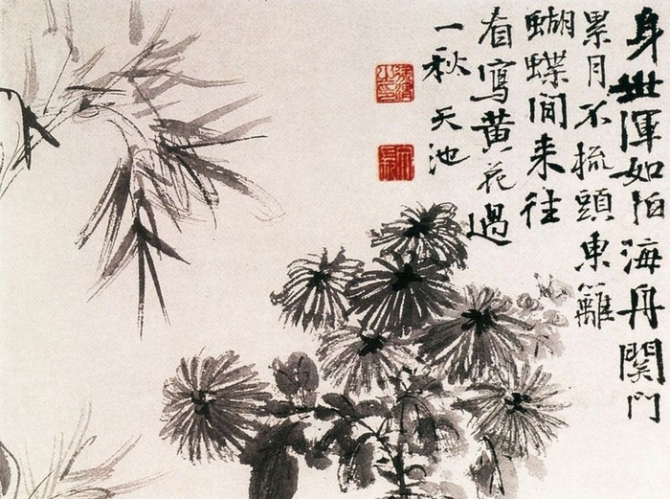 身世渾如泊海舟關門
累月不梳頭東籬
蝴蝶間來往
看寫黃花過
一秋 天池